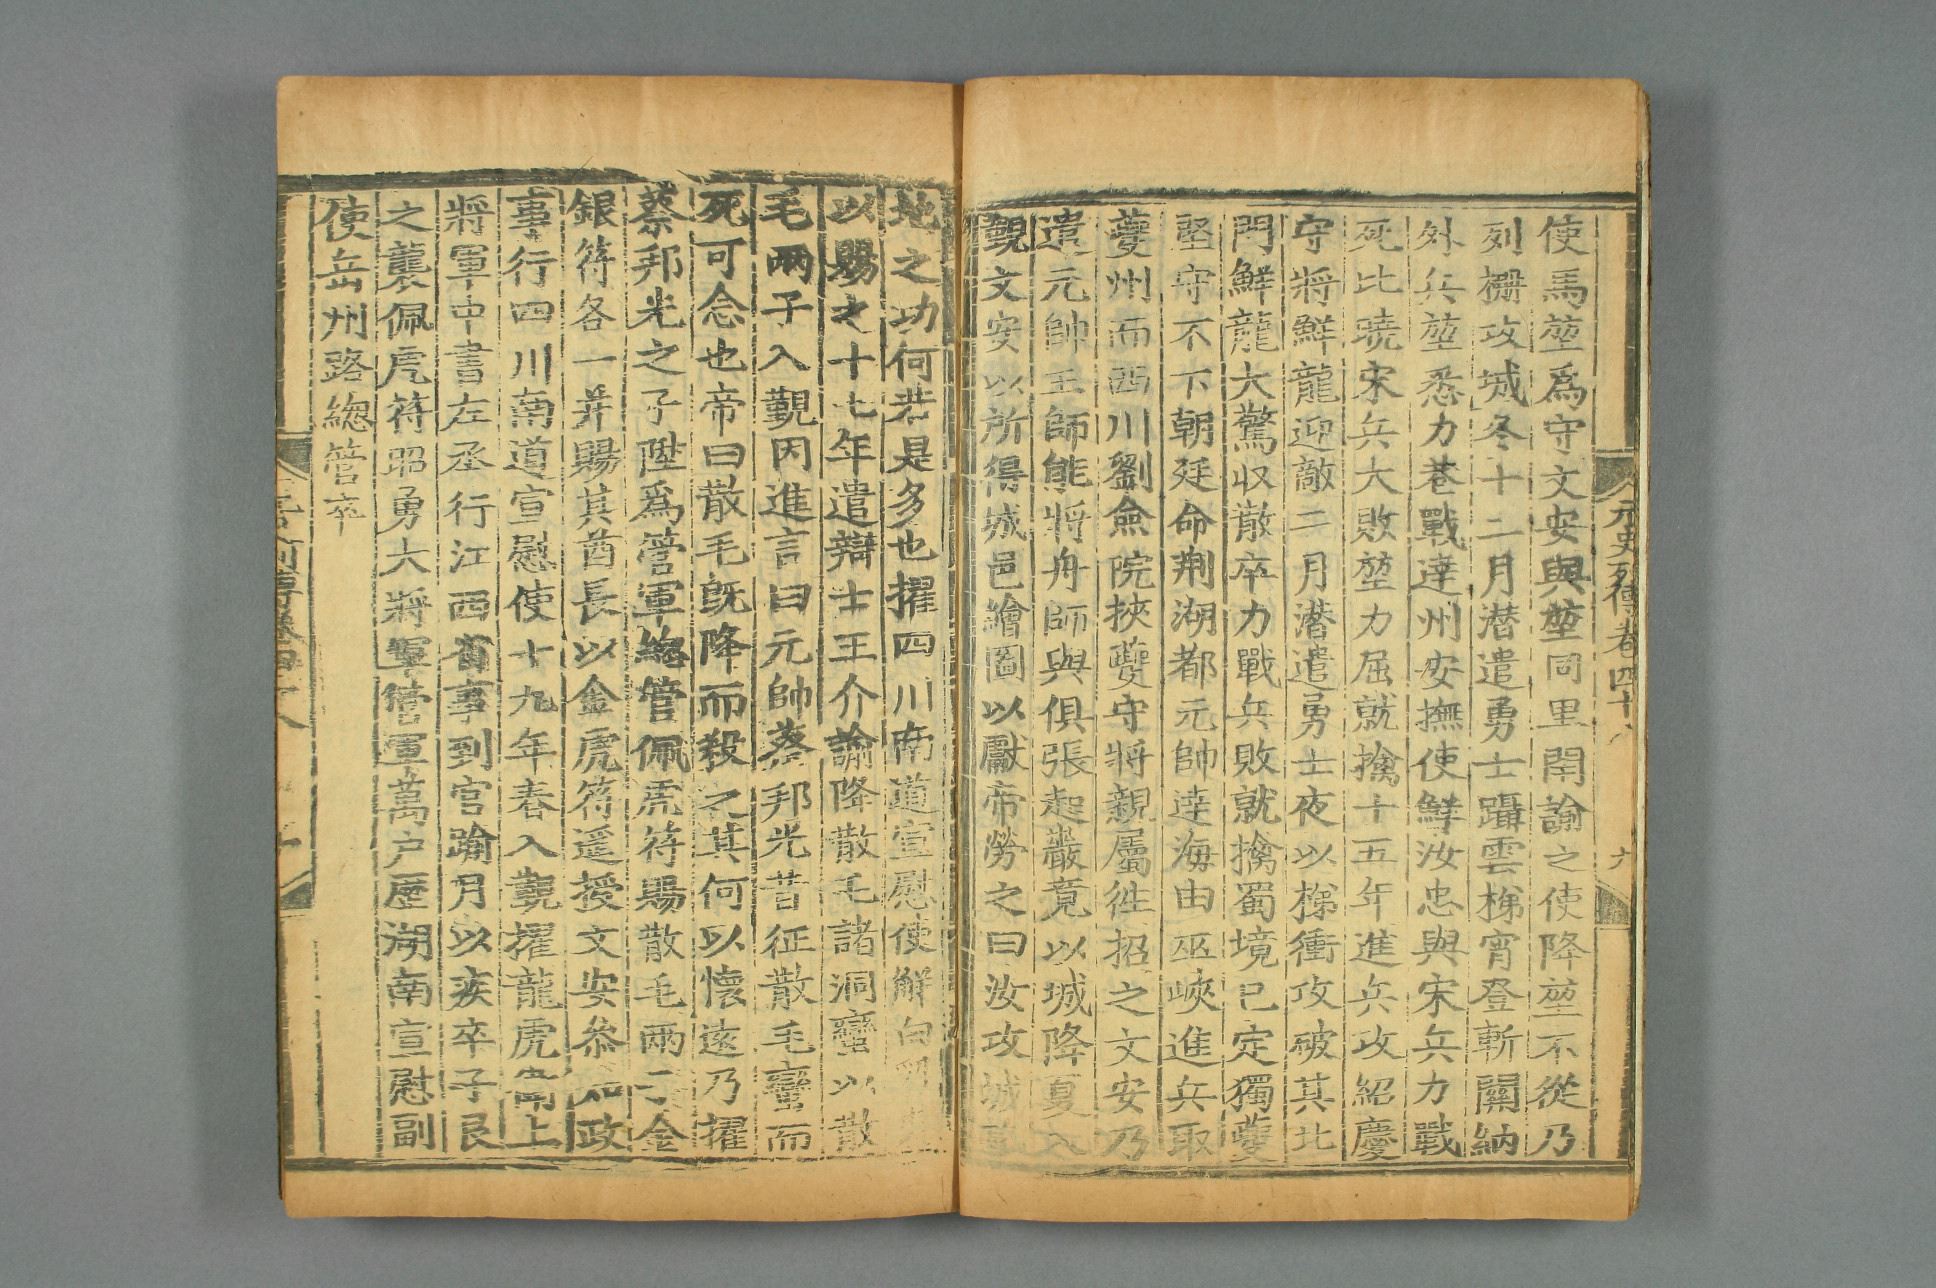 元史列傳卷四十八
九
使馬堃爲守文安與堃同里閈諭之使降堃不從乃
列柵攻城冬十二月潜遣勇士躡雲梯宵登斬關納
外兵堃悉力巷戰達州安撫使鮮汝忠與宋兵力戰
死比曉宋兵大敗堃力屈就擒十五年進兵攻紹慶
守將鮮龍迎敵二月潜遣勇士夜以梯衝攻破其北
門鮮龍大驚収散卒力戰兵敗就擒蜀境已定獨夔
堅守不下朝廷命荆湖都元帥達海由巫峽進兵取
夔州而西川劉僉院挾夔守將親屬徃招之文安乃
遣元帥王師能將舟師與俱張起巖竟以城降夏入
觐文安以所得城邑繪圖以獻帝勞之曰汝攻城
地之功何若是多也擢四川南道宣慰使解白
以賜之十七年遣辯士王介諭降散毛諸洞蠻以散
毛兩子入覲因進言曰元帥蔡邦光昔征散毛蠻而
死可念也帝曰散毛旣降而殺之其何以懷逺乃擢
蔡邦光之子陞爲管軍緫管佩虎符賜散毛兩子金
銀符各一并賜其酋長以金虎符遥授文安叅知政
事行四川南道宣慰使十九年春入覲擢龍虎衞上
將軍中書左丞行江西省事到官踰月以疾卒子艮
之襲佩虎符昭勇大將軍管軍萬户歷湖南宣慰副
使岳州路緫管卒